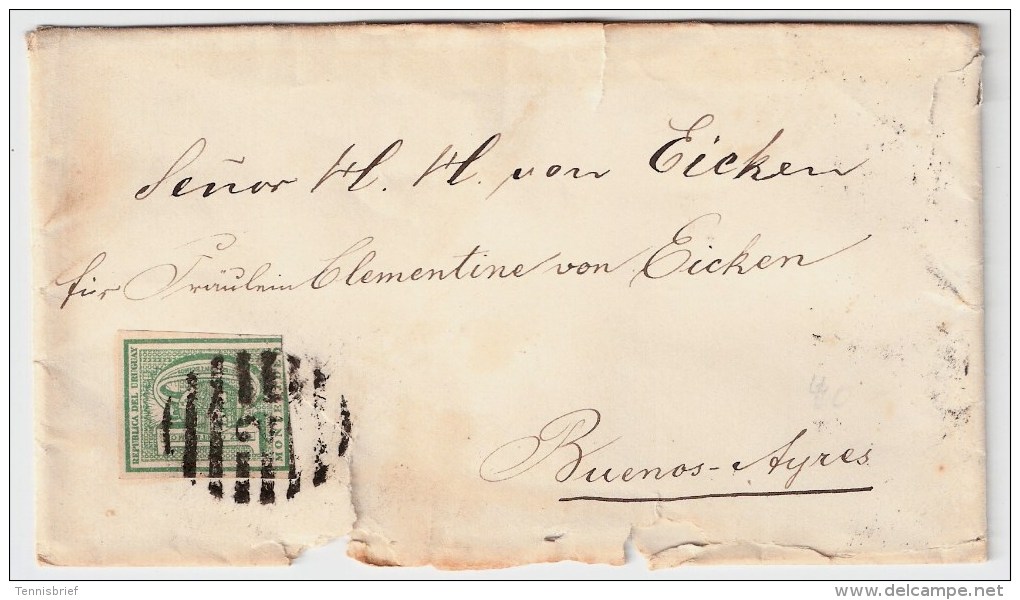 Señor H. H. von Eicken
für Fräulein Clementine von Eicken
REPUBLICA DEL URUGUAY
Buenos-Ayres
Tennisbrief
delcampe.net